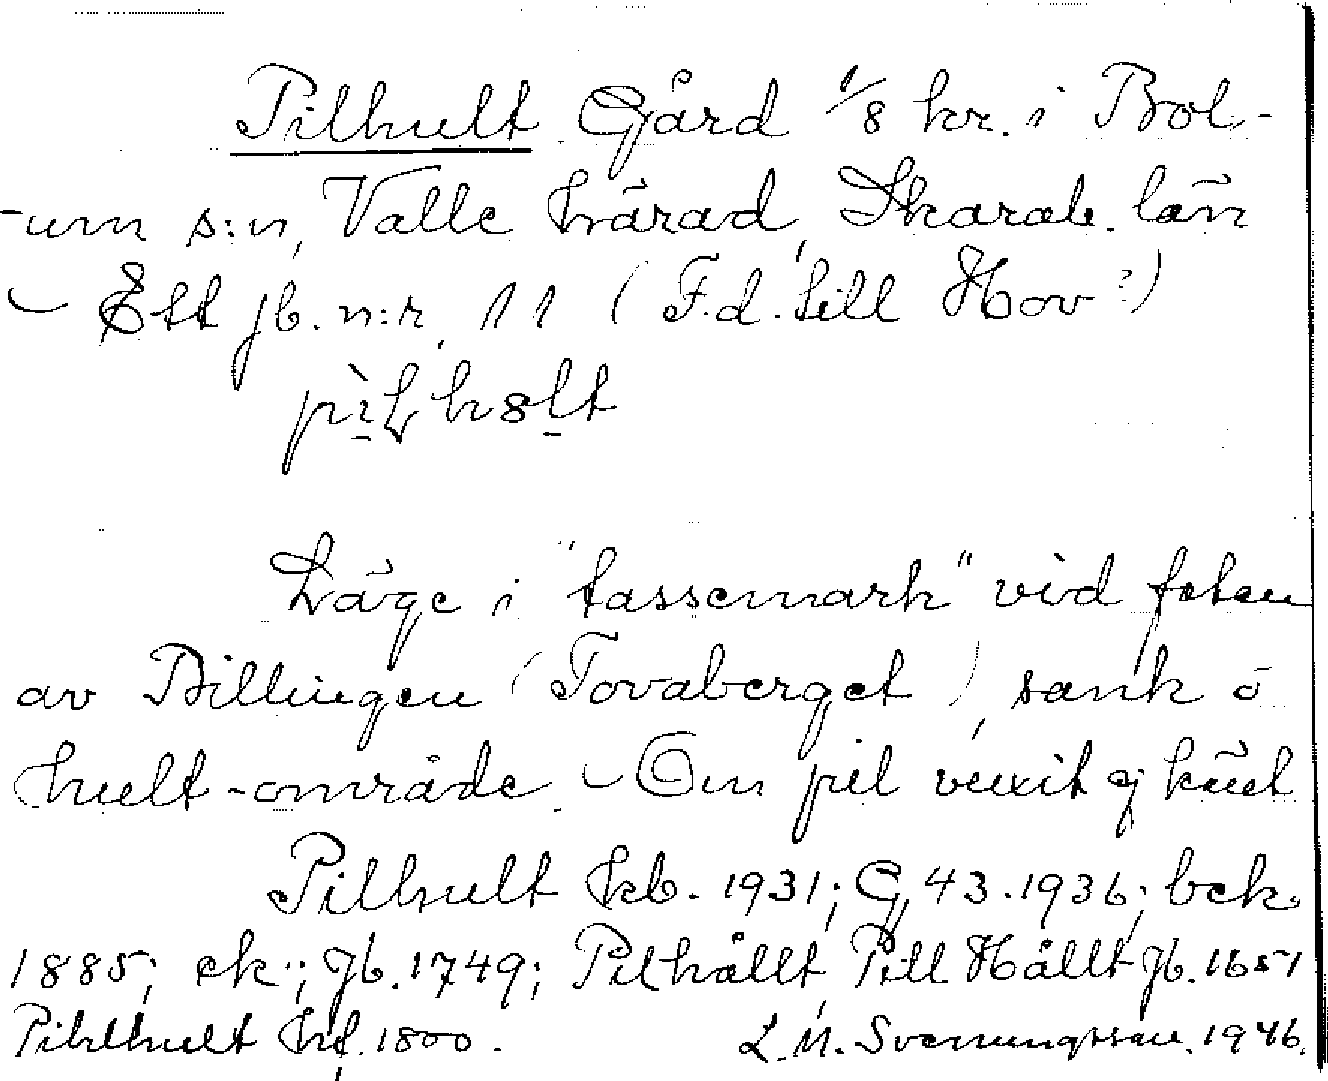 Pilhult Gård 1/8 kr. i Bol-
-um s:n, Valle härad, Skarab. län
– Ett jb. n:r. 11 (F.d. till Hov?)
Läge i "tassemark" vid foten
av Billingen (Tovaberget), sank o
hult-område. – Om pil vuxit ej känt
Pilhult kb. 1931; G, 43. 1936; bek.
1885; ek; Jb. 1749; Pilhållt, Pill Hållt Jb. 1651
Pihlhult hf. 1800. L. M. Svenungsson. 1946.